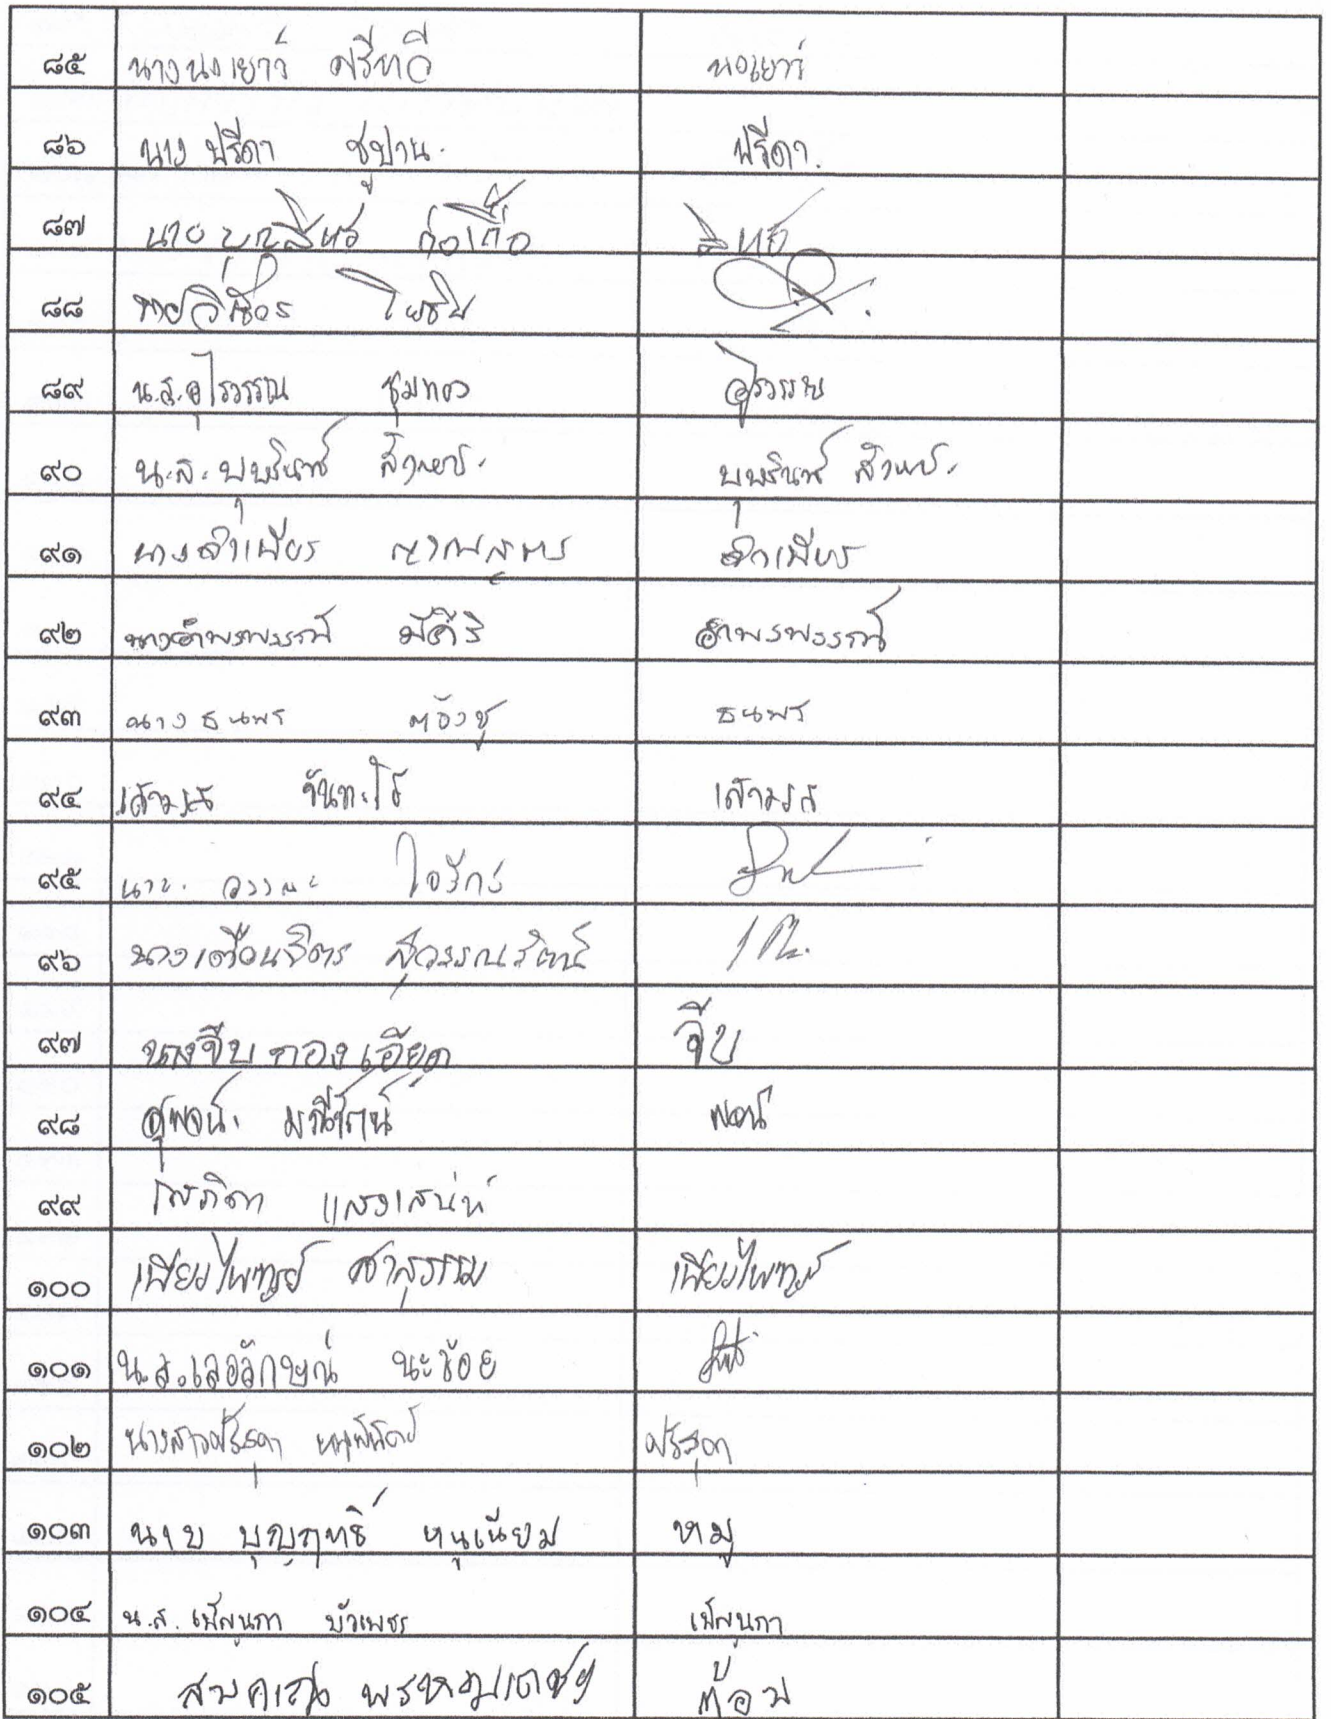 ๘๕ นางนงเยาว์ ศรีทวี นงเยาว์
๘๖ นาง ปรีดา ชูปาน. ปรีดา.
๘๗ นาย บุญสิทธิ์
๘๘ นายวิเชียร โยธิน
๘๙ น.ส.อุไรวรรณ ชุมทอง อุไรวรรณ
๙๐ น.ส. บุษรินทร์ บุษรินทร์
๙๑ นางลำเพียร ลำเพียร
๙๒ นางอำพรพรรณ์ มีคีรี อำพรพรรณ์
๙๓ นางธนพร ต้องชู ธนพร
๙๔ เสามรส จันทะโร เสามรส
๙๕ นาย. วรรณะ ใจรักร์
๙๖ นางเตือนจิตร สุวรรณรัตน์
๙๗ นางจีบ ทองเอียด จีบ
๙๘ สุพจน์ มณีรัตน์ พจน์
๙๙ โสภิดา แสงเสน่ห์
๑๐๐ เพียงไพฑูรย์ ศาสุธรรม เพียงไพฑูรย์
๑๐๑ น.ส.เลอลักษณ์ นะช้อย
๑๐๒ นางสาวศรสุดา ศรสุดา
๑๐๓ นาย บุญฤทธิ์ หนูเนียม หมู
๑๐๔ น.ส. เพ็ญนภา บัวเพชร เพ็ญนภา
๑๐๕ สมคเณ พรหมเดช ต้อม